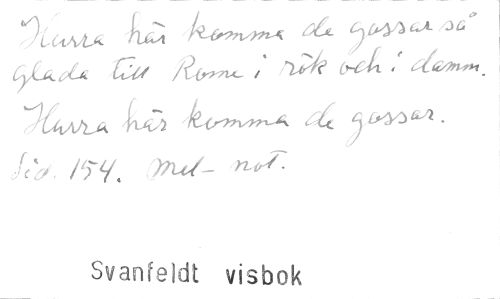 Hurra här komma de gossar så
glada till Rome i rök och i damm.
Hurra här komma de gossar.
Sid. 154. Mel- not.
Svanfeldt visbok